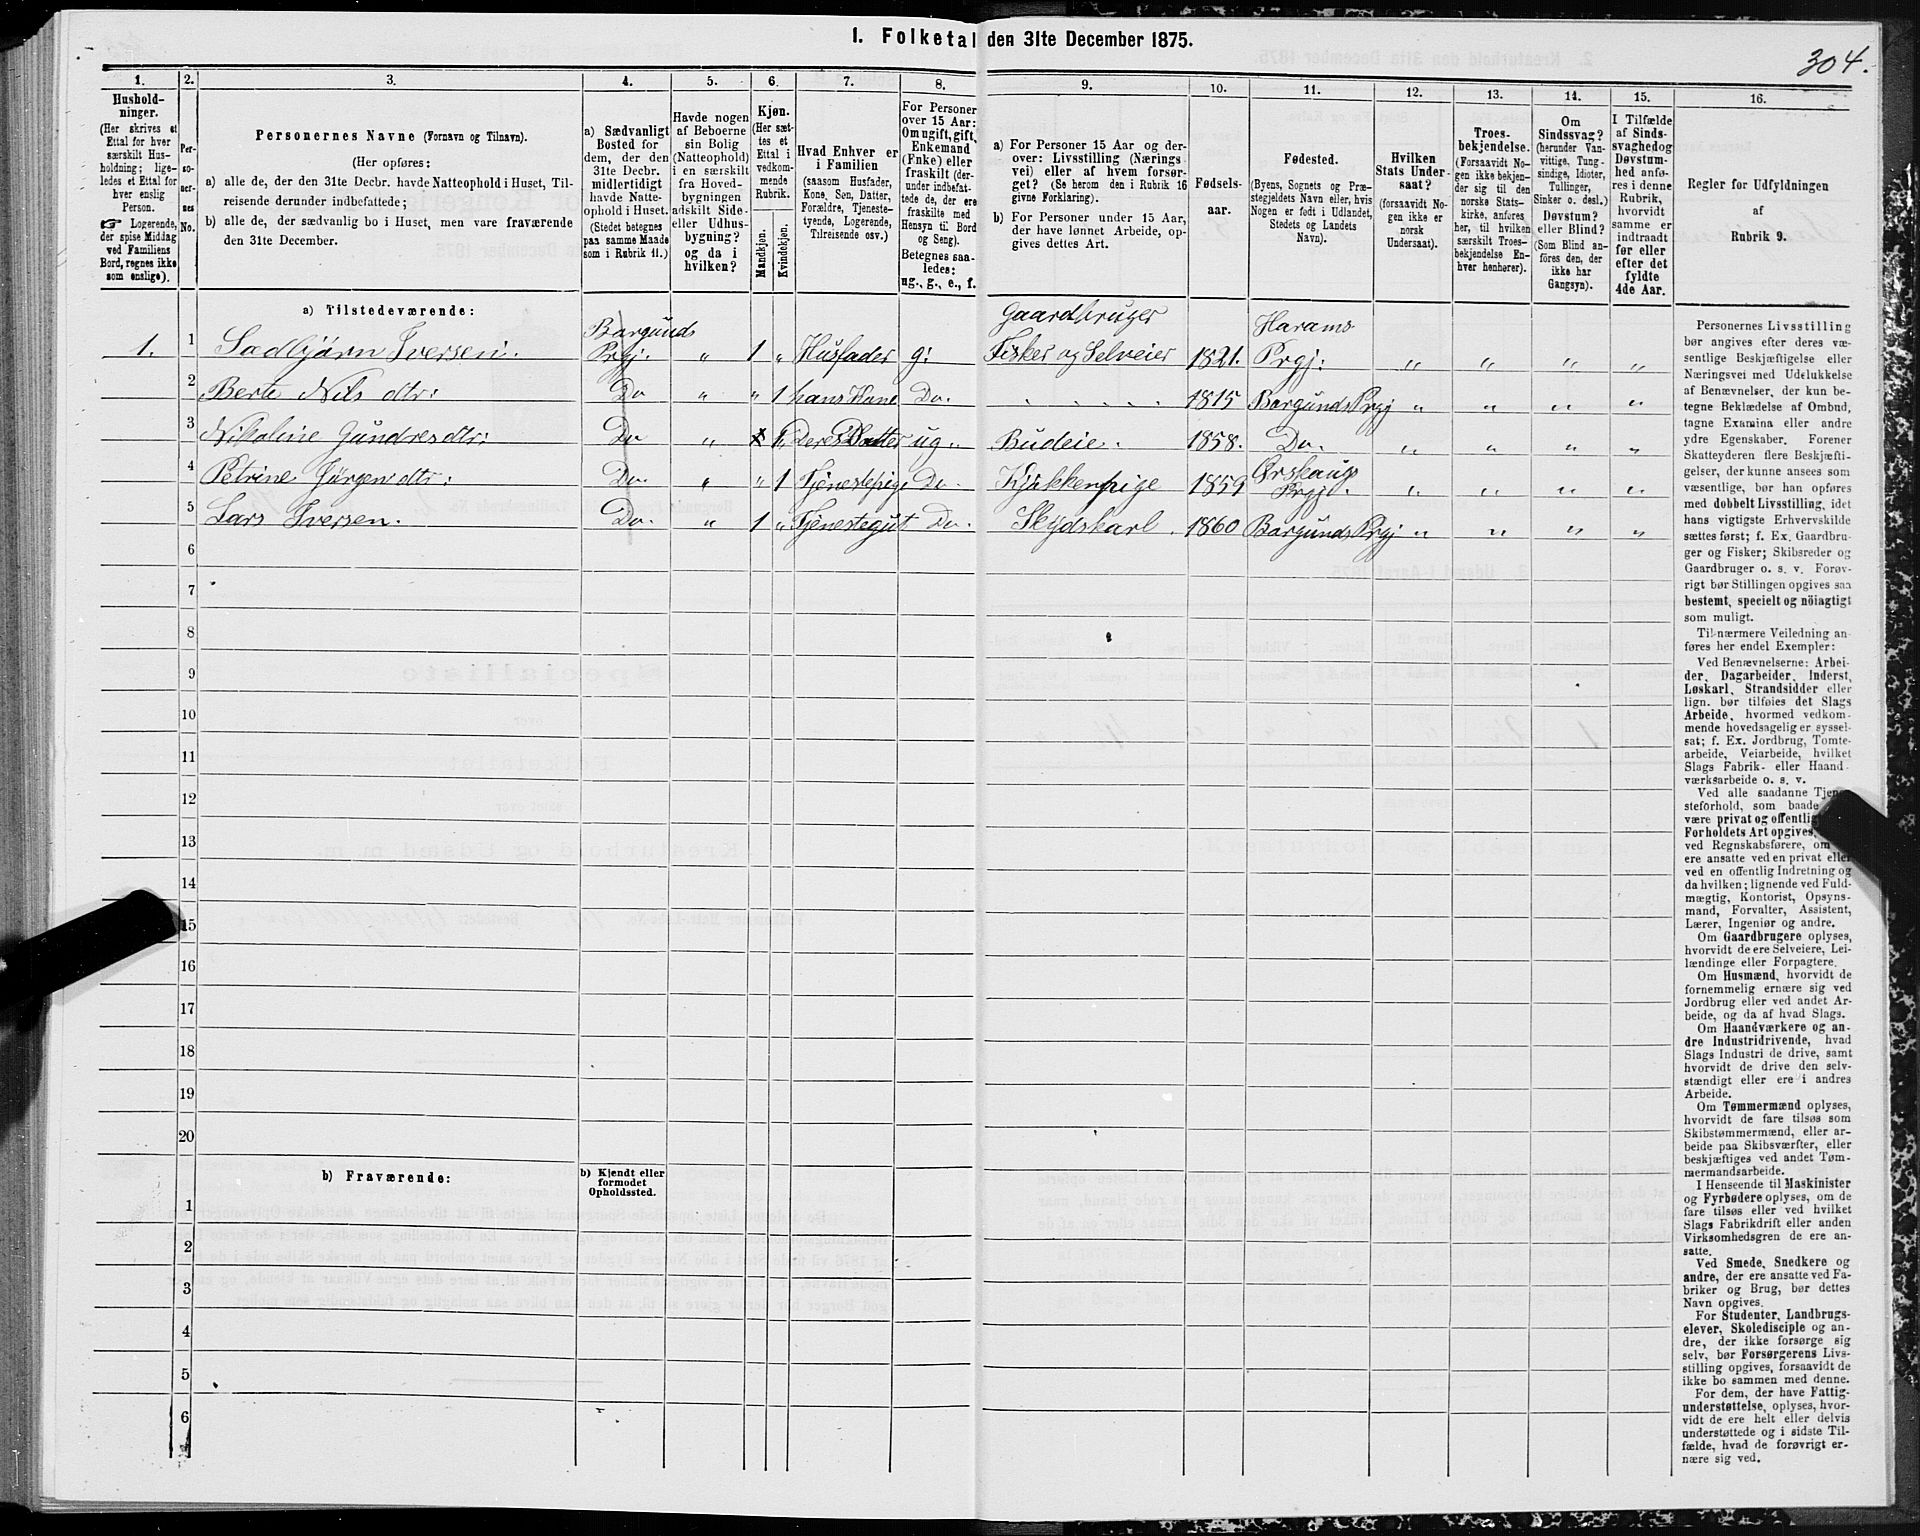 I. Folketal den 31te December 1875.
304.
1.
2.
3.
4.
5.
6.
7.
8.
9.
10.
11.
12.
13.
14.
15.
16.
Hushold-
ninger.
(Her skrives et
Ettal for hver
særskilt Hus-
holdning; lige-
ledes et Ettal for
hver enslig
Person.
☞ Logerende,
der spise Middag
ved Familiens
Bord, regnes ikke
som enslige).
Per-
so-
ner-
nes
No.
Personernes Navne (Fornavn og Tilnavn).
(Her opføres:
a) alle de, der den 31te Decbr. havde Natteophold i Huset, Til-
reisende derunder indbefattede;
b) alle de, der sædvanlig bo i Huset, men vare fraværende
den 31te December.
a) Sædvanligt
Bosted for
dem, der den
31te Decbr.
midlertidigt
havde Natte-
ophold i Huset.
(Stedet betegnes
paa samme Maade
som i Rubrik 11.)
Havde nogen
af Beboerne
sin Bolig
(Natteophold)
i en særskilt
fra Hoved-
bygningen
adskilt Side-
eller Udhus-
bygning?
og da i
hvilken?
Kjøn.
(Her sæt-
tes et
Ettal i
vedkom-
mende
Rubrik.
Mandkjøn.
Kvindekjøn.
Hvad Enhver er
i Familien
(saasom Husfader,
Kone, Søn, Datter,
Forældre, Tjeneste-
tyende, Logerende,
Tilreisende osv.)
For Personer
over 15 Aar:
Om ugift, gift,
Enkemand
(Enke) eller
fraskilt (der-
under indbefat-
tede de, der ere
fraskilte med
Hensyn til Bord
og Seng).
Betegnes saa-
ledes:
ug., g., e., f.
a) For Personer 15 Aar og der-
over: Livsstilling (Nærings
vei) eller af hvem forsør-
get? (Se herom den i Rubrik 16
givne Forklaring).
b) For Personer under 15 Aar,
der have lønnet Arbeide, op-
gives dettes Art.
Fødsels-
aar.
Fødested.
(Byens, Sognets og Præ-
stegjeldets Navn eller, hvis
Nogen er født i Udlandet,
Stedets og Landets
Navn).
Hvilken
Stats Under-
saat?
(forsaavidt No-
gen ikke er
norsk
Undersaat).
Troes-
bekjendelse.
(Forsaavidt No-
gen ikke bekjen-
der sig til den
norske Stats-
kirke, anføres
her, til hvilken
særskilt Troes-
bekjendelse En-
hver henhører).
Om
Sindssvag?
(herunder Van-
vittige, Tung-
sindige, Idioter,
Tullinger,
Sinker o. desl.)
Døvstum?
eller Blind?
(Som Blind an-
føres den, der
ikke har
Gangsyn).
I Tilfælde
af Sinds-
svaghed og
Døvstum-
hed anfø-
res i denne
Rubrik,
hvorvidt
samme er
indtraadt
før eller
efter det
fyldte
4de Aar.
Regler for Udfyldningen
af
Rubrik 9.
a) Tilstedeværende:
1. 1 Sadbjørn Iversen. Borgunds Prgj. „ 1 „ Husfader g: Gaardbruger Fisker og Selveier 1821. Harams Prgj: „ „ „ „
2 Berte Nils dtr: Do „ „ 1 hans Kone Do. 1815 Borgunds Prgj „ „ „ „
3 Nikoline Gundresdtr: Do „ 1 Deres Datter ug. Budeie. 1858. Do. „ „ „ „
4 Petrine Jørgensdtr: Do. „ „ 1 Tjenestepige Do. Kjøkkenpige 1859 Ørskaugs Prgj. „ „ „ „
5 Lars Iversen. Do. „ 1 „ Tjenestegut Do. Skydskarl. 1860 Borgunds Prgj „ „ „ „
6
7
8
9
10
11
12
13
14
15
16
17
18
19
20
b) Fraværende:
b) Kjendt eller
formodet
Opholdssted.
1
2
3
4
5
6
Personernes Livsstilling
bør angives efter deres væ-
sentlige Beskjæftigelse eller
Næringsvei med Udelukkelse
af Benævnelser, der kun be-
tegne Beklædelse af Ombud,
tagne Examina eller andre
ydre Egenskaber. Forener
Skatteyderen flere Beskjæfti-
gelser, der kunne ansees som
væsentlige, bør han opføres
med dobbelt Livsstilling, idet
hans vigtigste Erhvervskilde
sættes først; f. Ex. Gaardbru-
ger og Fisker; Skibsreder og
Gaardbruger o. s. v. Forøv-
rigt bør Stillingen opgives saa
bestemt, specielt og nøiagtigt
som muligt.
Til nærmere Veiledning an-
føres her endel Exempler:
Ved Benævnelserne: Arbei-
der, Dagarbeider, Inderst,
Løskarl, Strandsidder eller
lign. bør tilføies det Slags
Arbeide, hvormed vedkom-
mende hovedsagelig er syssel-
sat; f. Ex. Jordbrug, Tomte-
arbeide, Veiarbeide, hvilket
Slags Fabrik- eller Haand-
værksarbeide o. s. v.
Ved alle saadanne Tjene-
steforhold, som baade
være privat og offentlig
Forholdets Art opgives,
ved Regnskabsførere, om
ere ansatte ved en privat eller
ved en offentlig Indretning og
da hvilken; lignende ved Fuld-
mægtig, Kontorist, Opsyns-
mand, Forvalter, Assistent,
Lærer, Ingeniør og andre.
Om Gaardbrugere oplyses,
hvorvidt de ere Selveiere, Lei-
lændinge eller Forpagtere.
Om Husmænd, hvorvidt de
fornemmelig ernære sig ved
Jordbrug eller ved andet Ar-
beide, og da af hvad Slags.
Om Haandværkere og an-
dre Industridrivende, hvad
Slags Industri de drive, samt
hvorvidt de drive den selv-
stændigt eller ere i andres
Arbeide.
Om Tømmermænd oplyses,
hvorvidt de fare tilsøs som
Skibstømmermænd, eller ar-
beide paa Skibsværfter, eller
beskjæftiges ved andet Tøm-
mermandsarbeide.
I Henseende til Maskinister
og Fyrbødere oplyses, om de
fare tilsøs eller ved hvilket
Slags Fabrikdrift eller anden
Virksomhedsgren de ere an-
satte.
Ved Smede, Snedkere og
andre, der ere ansatte ved Fa-
briker og Brug, bør dettes
Navn opgives.
For Studenter, Landbrugs-
elever, Skoledisciple og an-
dre, der ikke forsørge sig
selv, bør Forsørgerens Livs-
stilling opgives, forsaavidt de
ikke bo sammen med denne.
For dem, der have Fattig-
understøttelse, oplyses, hvor-
vidt de ere helt eller delvis
understøttede og i sidste Til-
fælde, hvad de forøvrigt er-
nære sig ved.